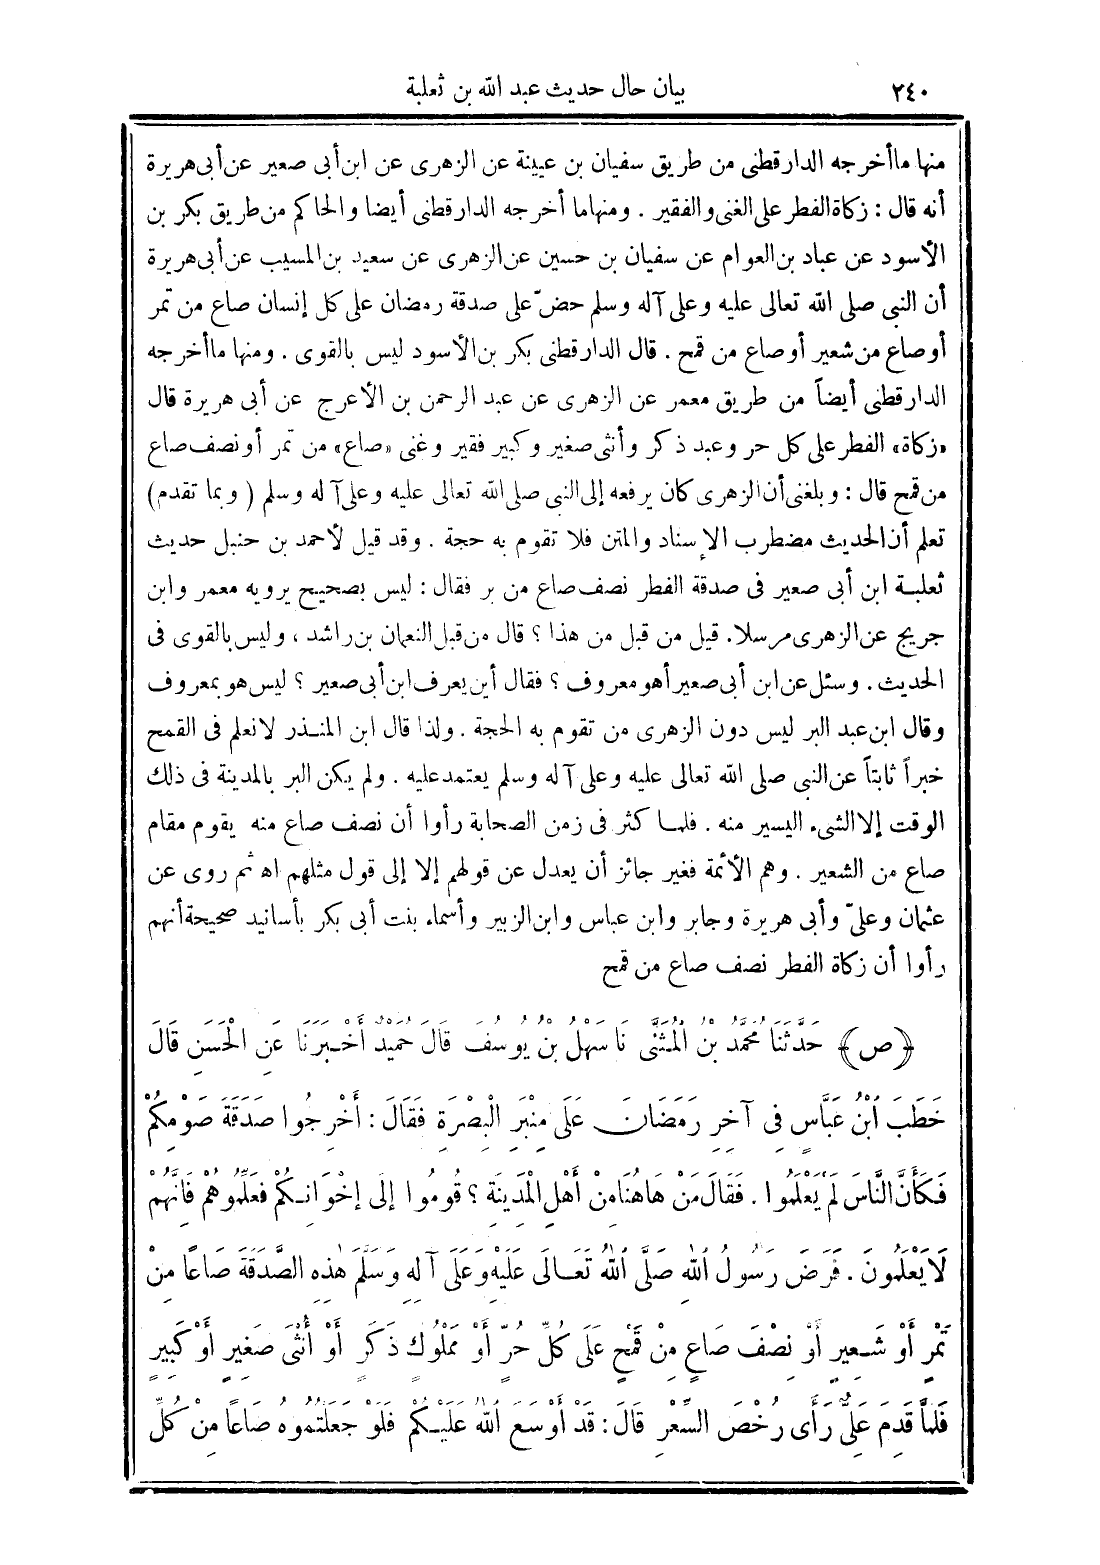 ٢٤٠ بيان حال حديث عبد الله بن ثعلبة
منها ما أخرجه الدارقطنى من طريق سفيان بن عيينة عن الزهرى عن ابن أبى صعير عن أبى هريرة
أنه قال : زكاة الفطر على الغنى والفقير . ومنها ما أخرجه الدارقطنى أيضا والحاكم من طريق بكر بن
الأسود عن عباد بن العوام عن سفيان بن حسين عن الزهرى عن سعيد بن المسيب عن أبى هريرة
أن النبى صلى الله تعالى عليه وعلى آله وسلم حضّ على صدقة رمضان على كل إنسان صاع من تمر
أو صاع من شعير أو صاع من قمح . قال الدارقطنى بكر بن الأسود ليس بالقوى . ومنها ما أخرجه
الدارقطنى أيضاً من طريق معمر عن الزهرى عن عبد الرحمن بن الأعرج عن أبى هريرة قال
«زكاة» الفطر على كل حر وعبد ذكر وأنثى صغير وكبير فقير وغنى «صاع» من تمر أو نصف صاع
من قمح قال : وبلغنى أن الزهرى كان يرفعه إلى النبى صلى الله تعالى عليه وعلى آله وسلم ( وبما تقدم )
تعلم أن الحديث مضطرب الإسناد والمتن فلا تقوم به حجة . وقد قيل لأحمد بن حنبل حديث
ثعلبة ابن أبى صعير فى صدقة الفطر نصف صاع من بر فقال : ليس بصحيح يرويه معمر وابن
جريج عن الزهرى مرسلا. قيل من قبل من هذا ؟ قال من قبل النعمان بن راشد ، وليس بالقوى فى
الحديث . وسئل عن ابن أبى صعير أهو معروف ؟ فقال أين يعرف ابن أبى صعير ؟ ليس هو بمعروف
وقال ابن عبد البر ليس دون الزهرى من تقوم به الحجة . ولذا قال ابن المنذر لا نعلم فى القمح
خبراً ثابتاً عن النبى صلى الله تعالى عليه وعلى آله وسلم يعتمد عليه . ولم يكن البر بالمدينة فى ذلك
الوقت إلا الشىء اليسير منه . فلما كثر فى زمن الصحابة رأوا أن نصف صاع منه يقوم مقام
صاع من الشعير . وهم الأئمة فغير جائز أن يعدل عن قولهم إلا إلى قول مثلهم اه ثم روى عن
عثمان وعلىّ وأبى هريرة وجابر وابن عباس وابن الزبير وأسماء بنت أبى بكر بأسانيد صحيحة أنهم
رأوا أن زكاة الفطر نصف صاع من قمح
﴿ص﴾ حَدَّثَنَا مُحَمَّدُ بْنُ الْمُثَنَّى نَا سَهْلُ بْنُ يُوسُفَ قَالَ حُمَيْدٌ أَخْبَرَنَا عَنِ الْحَسَنِ قَالَ
خَطَبَ ابْنُ عَبَّاسٍ فِى آخِرِ رَمَضَانَ عَلَى مِنْبَرِ الْبَصْرَةِ فَقَالَ : أَخْرِجُوا صَدَقَةَ صَوْمِكُمْ
فَكَأَنَّ النَّاسَ لَمْ يَعْلَمُوا . فَقَالَ مَنْ هَاهُنَا مِنْ أَهْلِ الْمَدِينَةِ ؟ قُومُوا إِلَى إِخْوَانِكُمْ فَعَلِّمُوهُمْ فَإِنَّهُمْ
لَا يَعْلَمُونَ . فَرَضَ رَسُولُ اللهِ صَلَّى اللهُ تَعَالَى عَلَيْهِ وَعَلَى آلِهِ وَسَلَّمَ هٰذِهِ الصَّدَقَةَ صَاعًا مِنْ
تَمْرٍ أَوْ شَعِيرٍ أَوْ نِصْفَ صَاعٍ مِنْ قَمْحٍ عَلَى كُلِّ حُرٍّ أَوْ مَمْلُوكٍ ذَكَرٍ أَوْ أُنْثَى صَغِيرٍ أَوْ كَبِيرٍ
فَلَمَّا قَدِمَ عَلِىٌّ رَأَى رُخْصَ السِّعْرِ قَالَ : قَدْ أَوْسَعَ اللهُ عَلَيْكُمْ فَلَوْ جَعَلْتُمُوهُ صَاعًا مِنْ كُلِّ